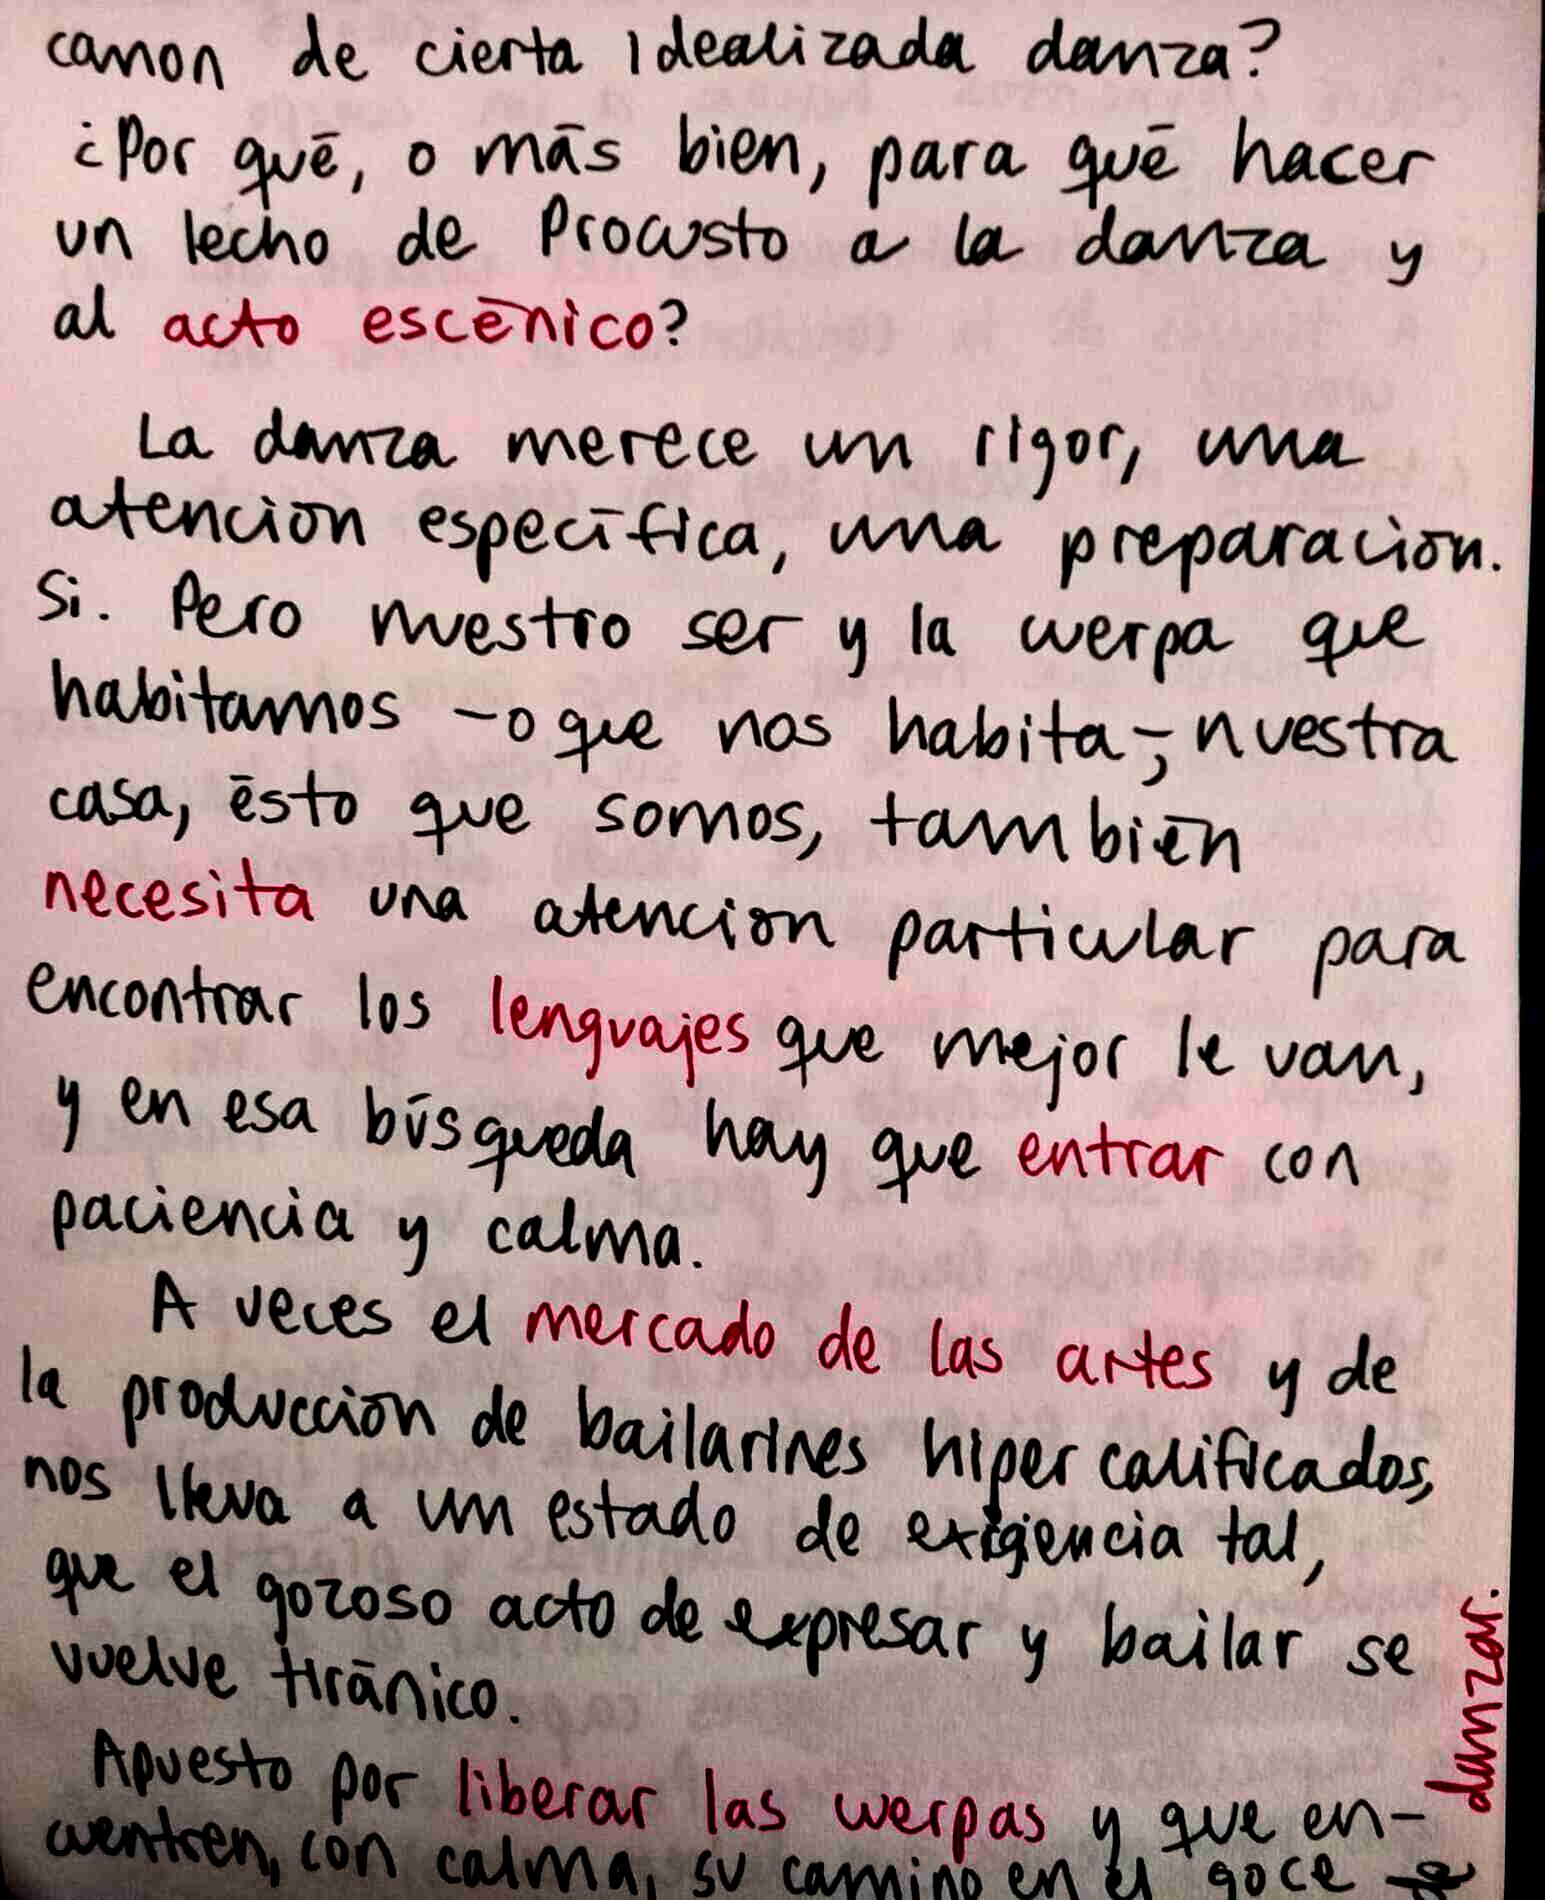 canon de cierta idealizada danza?
¿Por qué, o más bien, para qué hacer
un lecho de Procusto a la danza y
al acto escénico?
La danza merece un rigor, una
atención específica, una preparación.
Si. Pero nuestro ser y la cuerpa que
habitamos -o que nos habita-, nuestra
casa, ésto que somos, también
necesita una atención particular para
encontrar los lenguajes que mejor le van,
y en esa búsqueda hay que entrar con
paciencia y calma.
A veces el mercado de las artes y de
la producción de bailarines hiper calificados,
nos lleva a un estado de exigencia tal,
que el gozoso acto de expresar y bailar se
vuelve tiránico.
Apuesto por liberar las cuerpas y que en-
cuentren, con calma, su camino en el goce de
danzar.